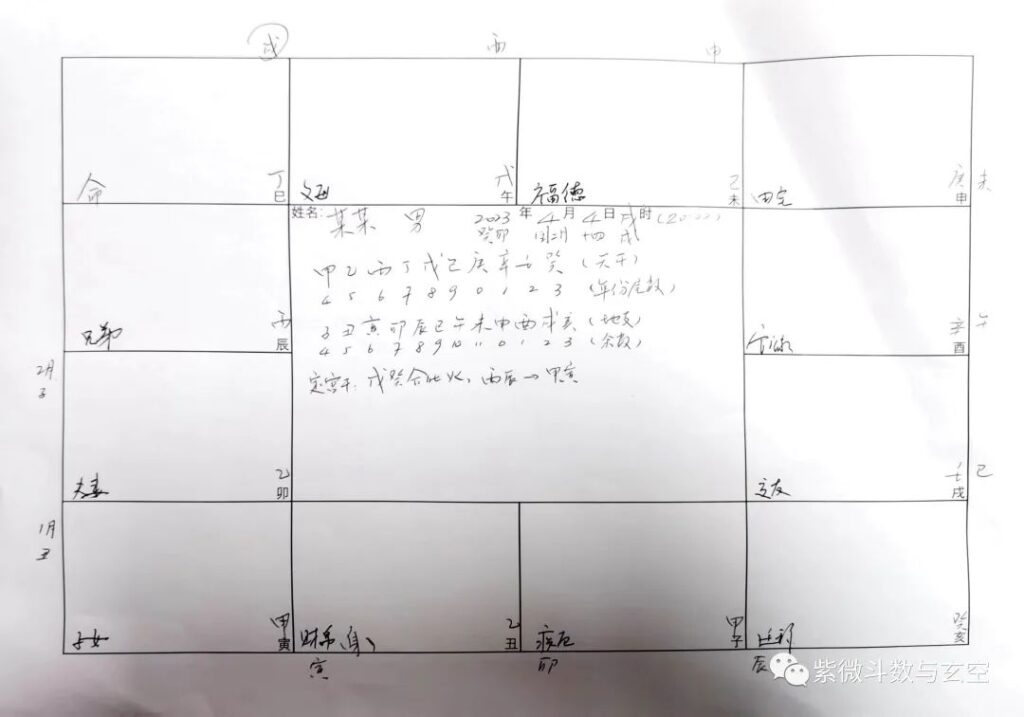 戌 酉 申
命 丁巳
父母 戊午
福德 己未
田宅 庚申 未
姓名: 某某 男 2023年4月4日戌时(20:22)
癸卯 闰二月 十四 戌
甲乙丙丁戊己庚辛壬癸 (天干)
4 5 6 7 8 9 0 1 2 3 (年份尾数)
子丑寅卯辰巳午未申酉戌亥 (地支)
4 5 6 7 8 9 10 11 0 1 2 3 (余数)
定宫干: 戊癸合化火, 丙辰→甲寅
兄弟 丙辰
官禄 辛酉 午
2月 子
夫妻 乙卯
交友 壬戌 巳
1月 丑
子女 甲寅
财帛(身) 乙丑
疾厄 甲子
迁移 癸亥
寅 卯 辰
紫微斗数与玄空